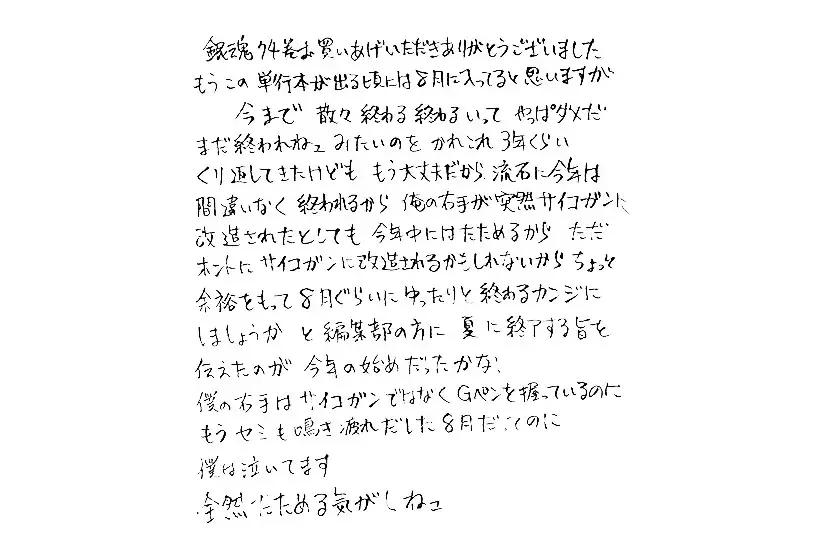 銀魂74巻お買いあげいただきありがとうございました
もうこの単行本が出る頃には8月に入ってると思いますが
今まで 散々終わる終わるいって やっぱダメだ
まだ終われねェ みたいのを かれこれ3年くらい
くり返してきたけども もう大丈夫だから 流石に今年は
間違いなく 終われるから 俺の右手が突然サイコガンに
改造されたとしても 今年中にはたためるから ただ
ホントに サイコガンに改造されるかもしれないから ちょっと
余裕をもって 8月ぐらいに ゆったりと終わるカンジに
しましょうか と編集部の方に 夏に終了する旨を
伝えたのが 今年の始めだったかな、
僕の右手は サイコガンではなく Gペンを握っているのに
もう セミも鳴き疲れだした8月だってのに
僕は泣いてます
全然 たためる気がしねェ